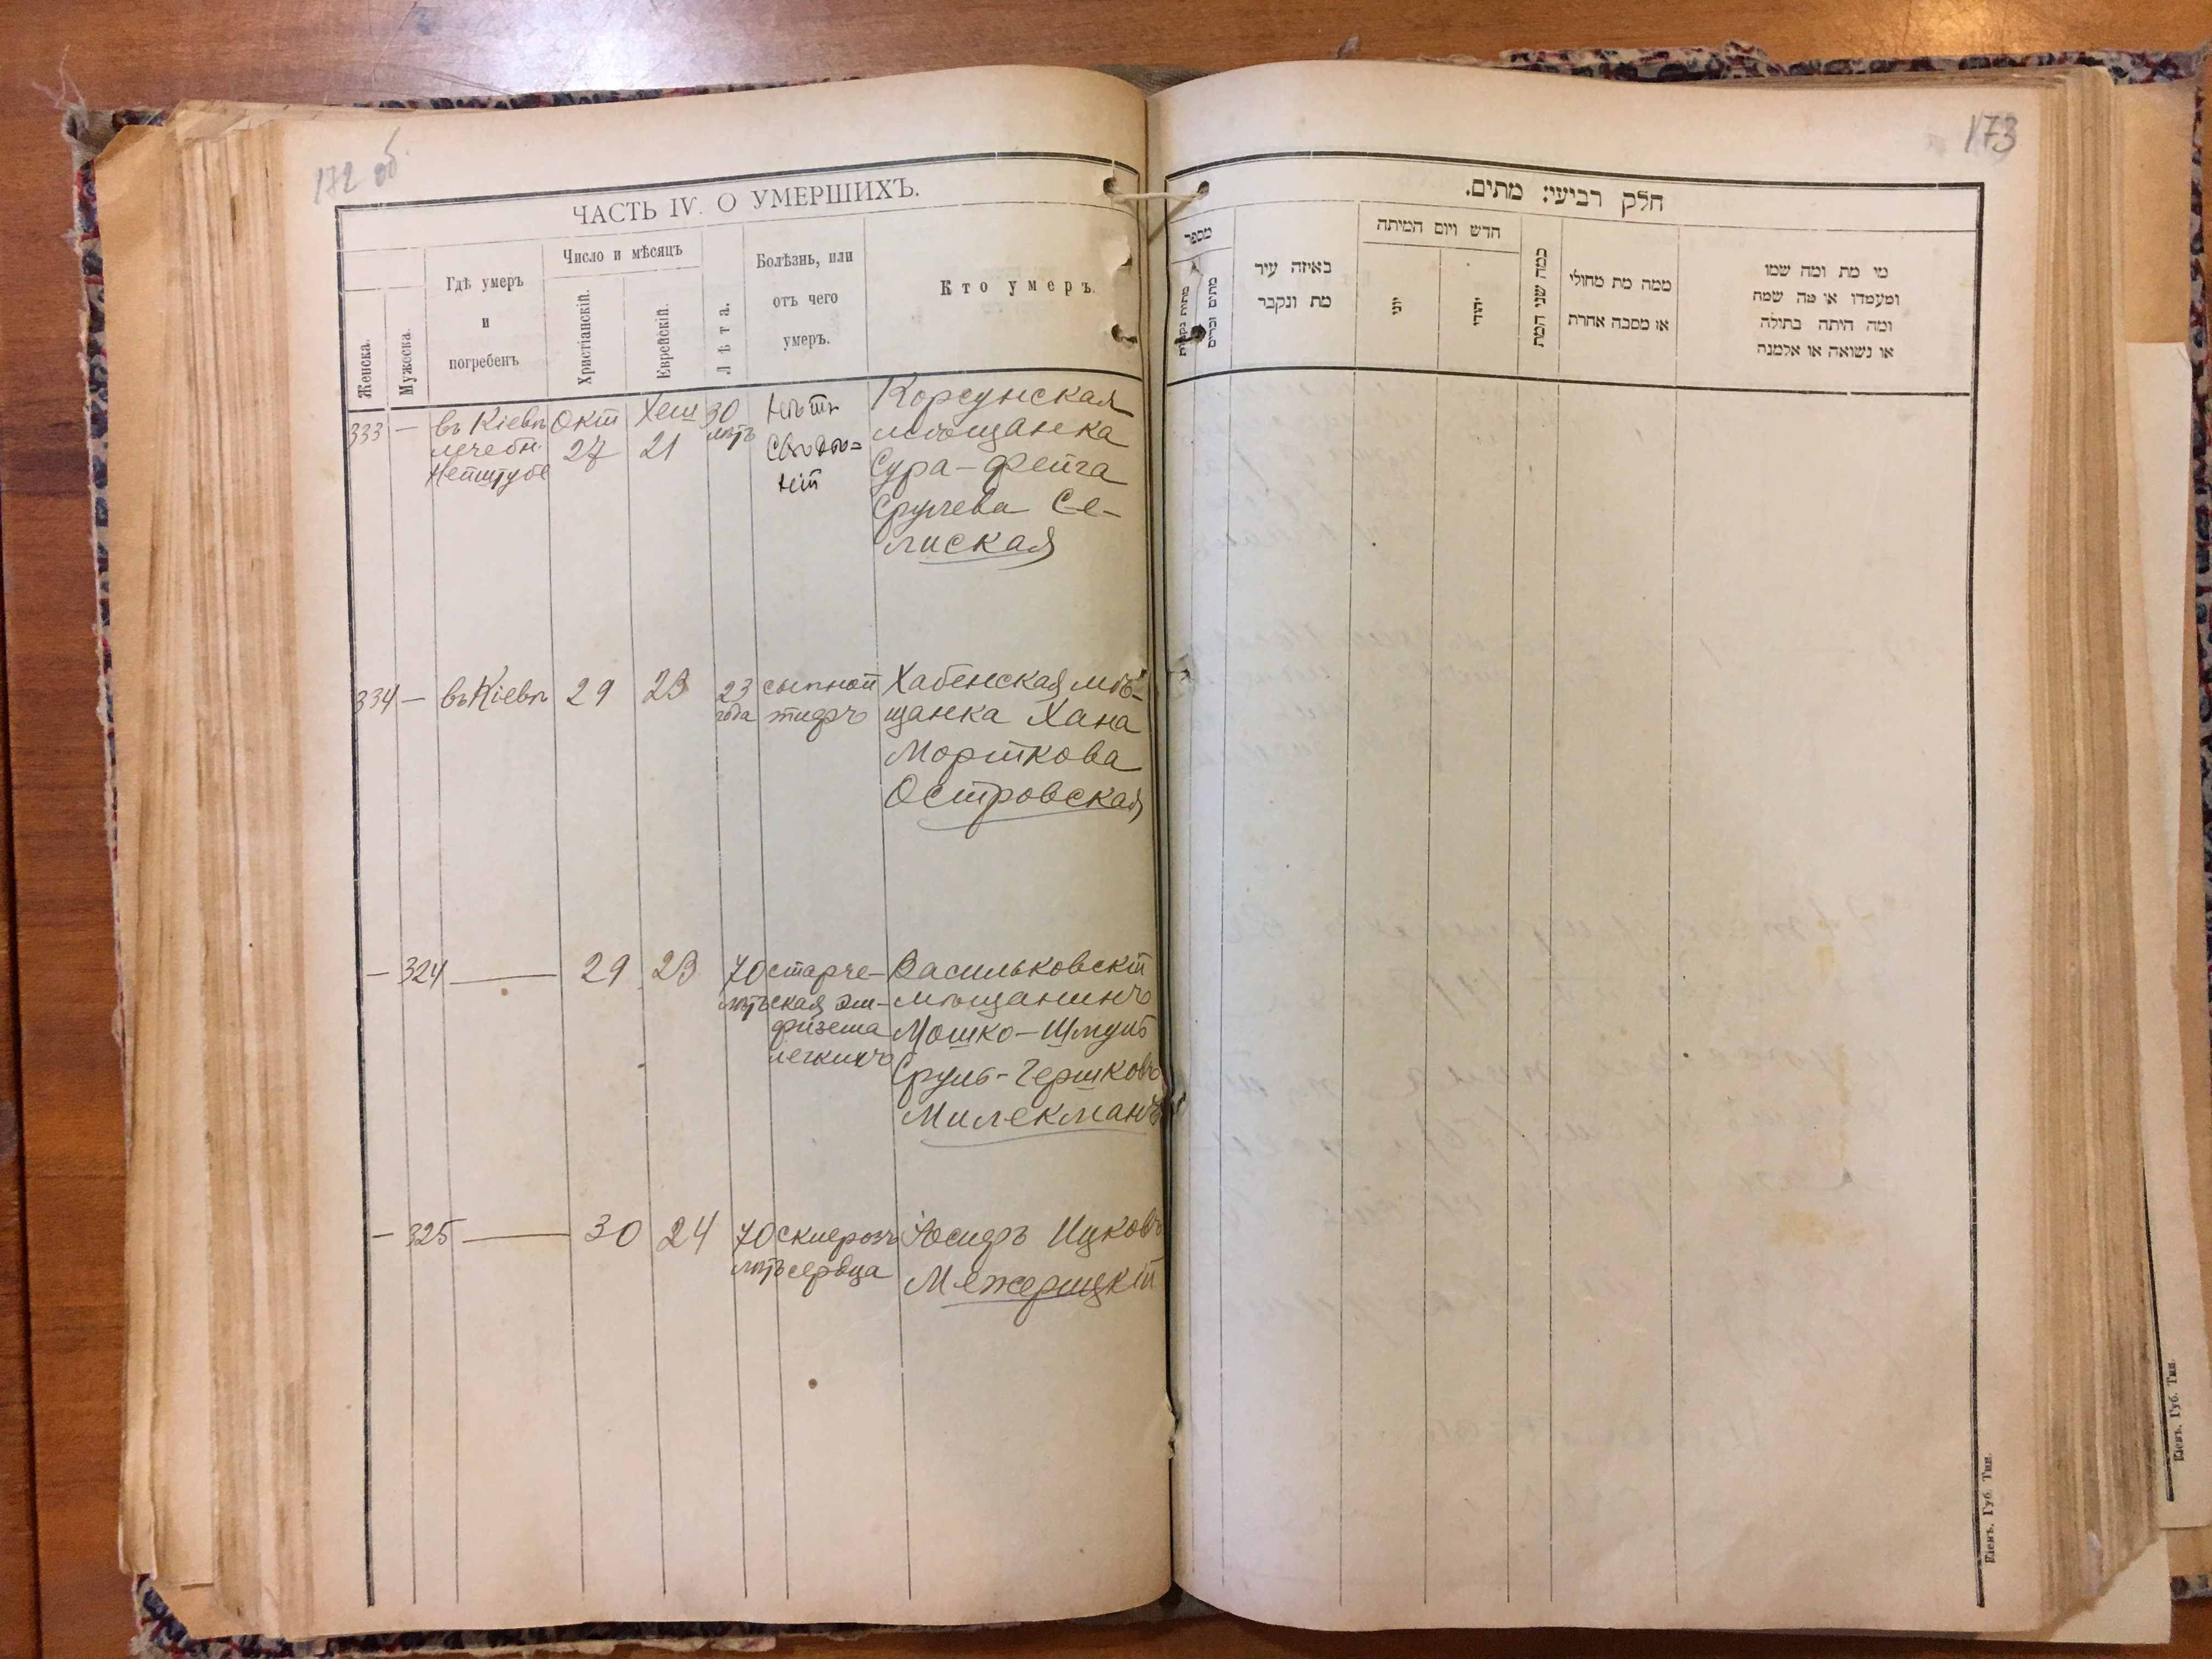 172 об.
ЧАСТЬ IV. О УМЕРШИХЪ.
Женска.
Мужеска.
Гдѣ умеръ
и
погребенъ
Число и мѣсяцъ
Христіанскій.
Еврейскій.
Лѣта.
Болѣзнь, или
отъ чего
умеръ.
Кто умеръ.
333 — въ Кіевѣ Окт Хеш 30 нѣтъ Корсунская
лечебн. 27 21 лѣтъ свѣдѣ= мѣщанка
ній Сура-Фейга
Срулева Се-
лиская
334 — въ Кіевѣ 29 23 23 сыпной Хабенская мѣ-
года тифъ щанка Хана
Морткова
Островская
— 324 — 29 23 70 старче- Васильковскій
лѣтъ ская эм- мѣщанинъ
физема Мошко-Шмуль
легкихъ Сруль-Гершковъ
Милекманъ
— 325 — 30 24 70 склерозъ Іосифъ Ицковъ
лѣтъ сердца Межерицкій
173
חלק רביעי׃ מתים.
מספר
מתות נקבות
מתים זכרים
באיזה עיר
מת ונקבר
חדש ויום המיתה
יוני
יהודי
כמה שני המת
ממה מת מחולי
או מסבה אחרת
מי מת ומה שמו
ומעמדו או מה שמה
ומה היתה בתולה
או נשואה או אלמנה
Кіевъ. Губ. Тип.
Кіевъ. Губ. Тип.